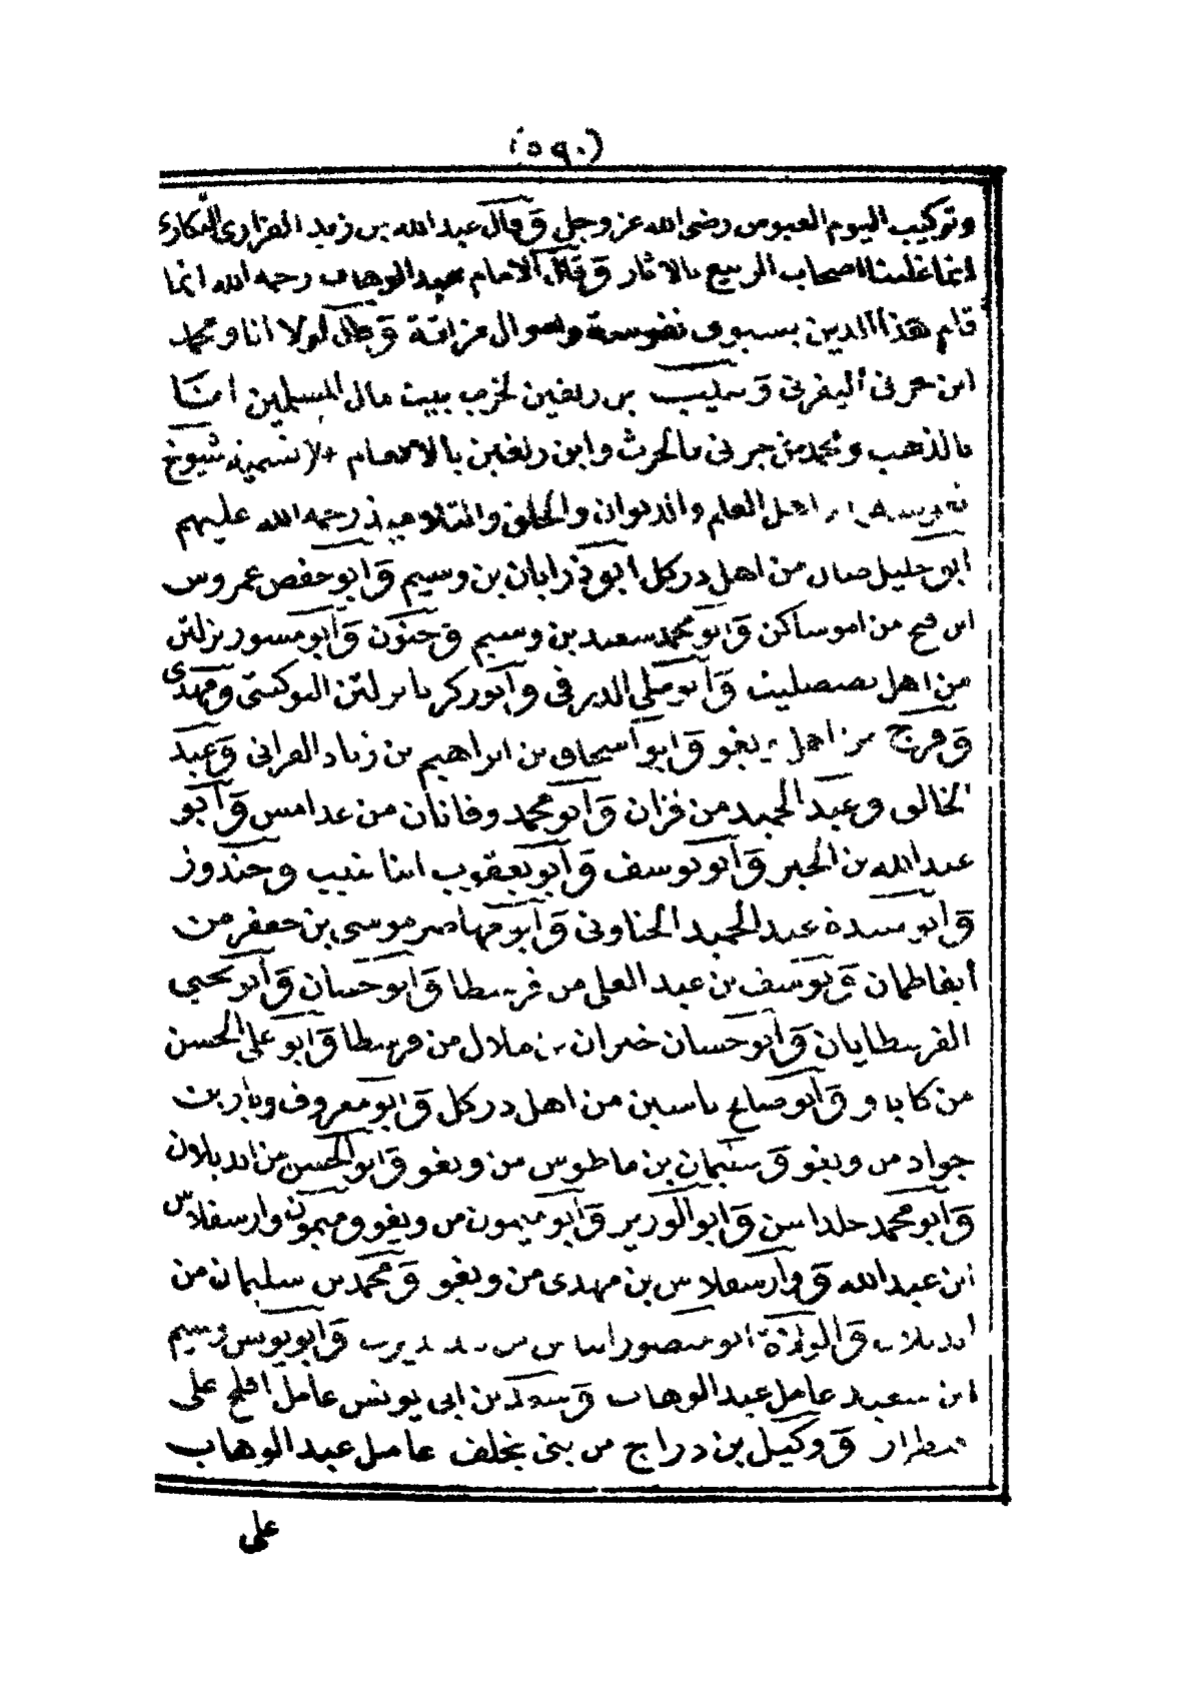 (٥٩٠)
وتركيب اليوم العبوس رضى الله عز وجل وقال عبد الله بن زيد الفزارى النكارى
انما غلبنا اصحاب الربيع بالاثار وقال الامام عبد الوهاب رحمه الله انما
قام هذا الدين بسيوف نفوسة واموال مزاتة وقال لولا انا ومحمد
ابن جرنى اليفرنى و بن ريغين لخرب بيت مال المسلمين انا
بالذهب ومحمد بن جرنى بالحرث وابن ريغين بالانعام تسمية شيوخ
نفوسة اهل العلم والديوان والحلق والتلاميذ رحمه الله عليهم
ابو خليل صال من اهل دركل ابو ذر ابان بن وسيم وابو حفص عمروس
ابن فتح من اموساكن وابو محمد سعيد بن وسيم وحنون وابو مسور يزلتن
من اهل تصصليت وابو ميلى الدرفى وابو زكريا يرلتن التوكيتى ومهدى
وفرج من اهل ويغو وابو اسحاق بن ابراهيم بن زياد وعبد
الخالق وعبد الحميد من فزان وابو محمد وفانان من غدامس وابو
عبد الله بن الخير وابو يوسف وابو يعقوب ابنا وجندوز
وابو عبد الحميد الجناونى وابو مهاصر موسى بن جعفر من
أيفاطمان ويوسف بن عبد العلى من فرسطا وابو حسان وابو يحيى
الفرسطايان وابو حسان خيران بن ملال من فرسطا وابو على الحسن
من كاباو وابو صالح ياسين من اهل دركل وابو معروف ويدرن بن
جواد من ويغو وسليمان بن ماطوس من ويغو وابو الحسن من ابديلان
وابو محمد جلداسن وابو الوزير وابو ميمون من ويغو وميمون وارسفلاس
ابن عبد الله و وارسفلاس بن مهدى من ويغو ومحمد بن سليمان من
ابديلان و ابو منصور الياس من وابو يونس وسيم
ابن سعيد عامل عبد الوهاب وسعد بن ابى يونس عامل افلح على
قنطرار ووكيل بن دراج من بنى يخلف عامل عبد الوهاب
على